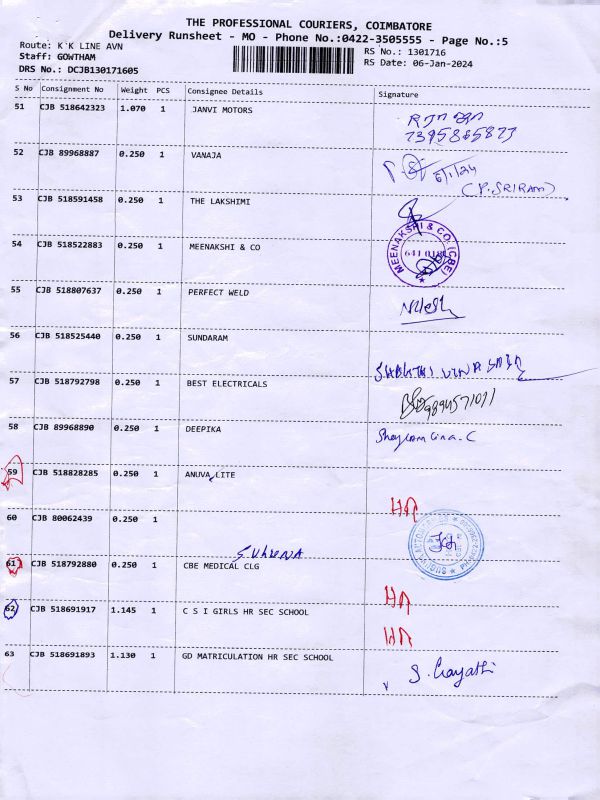 THE PROFESSIONAL COURIERS, COIMBATORE
Delivery Runsheet - MO - Phone No.:0422-3505555 - Page No.:5
Route: K K LINE AVN
RS No.: 1301716
Staff: GOWTHAM
RS Date: 06-Jan-2024
DRS No.: DCJB130171605
S No Consignment No Weight PCS Consignee Details Signature
51 CJB 518642323 1.070 1 JANVI MOTORS
7395865877
52 CJB 89968887 0.250 1 VANAJA
6/1/24
(P.SRIRAM)
53 CJB 518591458 0.250 1 THE LAKSHIMI
54 CJB 518522883 0.250 1 MEENAKSHI & CO
MEENAKSHI & CO. (CBE)
641 018
55 CJB 518807637 0.250 1 PERFECT WELD
Nilesh
56 CJB 518525440 0.250 1 SUNDARAM
57 CJB 518792798 0.250 1 BEST ELECTRICALS
9894571011
58 CJB 89968890 0.250 1 DEEPIKA
59 CJB 518828285 0.250 1 ANUVA LITE
60 CJB 80062439 0.250 1
61 CJB 518792880 0.250 1 CBE MEDICAL CLG
62 CJB 518691917 1.145 1 C S I GIRLS HR SEC SCHOOL
63 CJB 518691893 1.130 1 GD MATRICULATION HR SEC SCHOOL
S. Gayathi